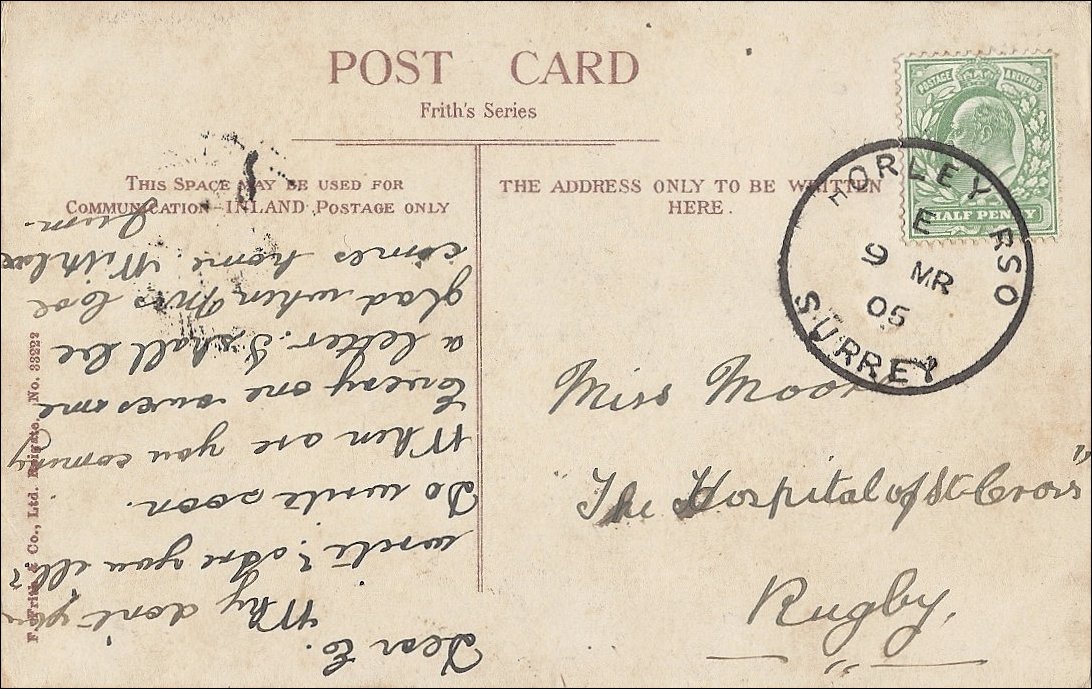 POST CARD
Frith's Series
THIS SPACE MAY BE USED FOR
COMMUNICATION—INLAND POSTAGE ONLY
THE ADDRESS ONLY TO BE WRITTEN
HERE.
POSTAGE & REVENUE
HALF PENNY
HORLEY RSO
E
9 MR
05
SURREY
Miss Moor
"The Hospital of St Cross"
Rugby.
Dear E.
Why don't you
write? Are you ill?
Do write soon.
When are you coming
Every one owes me
a letter. I shall be
glad when Mrs
comes home. With love
F. Frith & Co., Ltd. Reigate. No. 33222